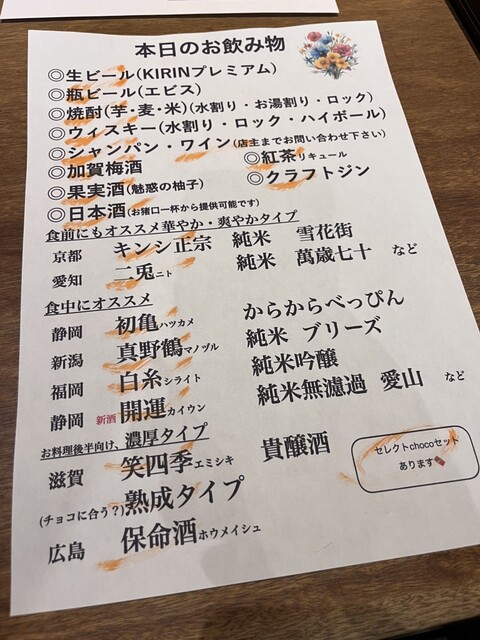 本日のお飲み物
◎生ビール(KIRINプレミアム)
◎瓶ビール(エビス)
◎焼酎(芋・麦・米)(水割り・お湯割り・ロック)
◎ウィスキー(水割り・ロック・ハイボール)
◎シャンパン・ワイン(店主までお問い合わせ下さい)
◎加賀梅酒 ◎紅茶リキュール
◎果実酒(魅惑の柚子) ◎クラフトジン
◎日本酒(お猪口一杯から提供可能です)
食前にもオススメ華やか・爽やかタイプ
京都 キンシ正宗 純米 雪花街
愛知 二兎ニト 純米 萬歳七十 など
食中にオススメ
静岡 初亀ハツカメ からからべっぴん
新潟 真野鶴マノヅル 純米 ブリーズ
福岡 白糸シライト 純米吟醸
静岡 新酒 開運カイウン 純米無濾過 愛山 など
お料理後半向け、濃厚タイプ
滋賀 笑四季エミシキ 貴醸酒
(チョコに合う?)熟成タイプ
広島 保命酒ホウメイシュ
セレクトchocoセット
あります🍫